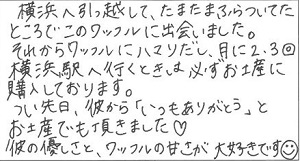 横浜へ引っ越して、たまたまふらついてた
ところでこのワッフルに出会いました。
それからワッフルにハマりだし、月に2.3回
横浜駅へ行くときは必ずお土産に
購入しております。
つい先日、彼から「いつもありがとう」と
お土産でも頂きました♡
彼の優しさと、ワッフルの甘さが大好きです☺